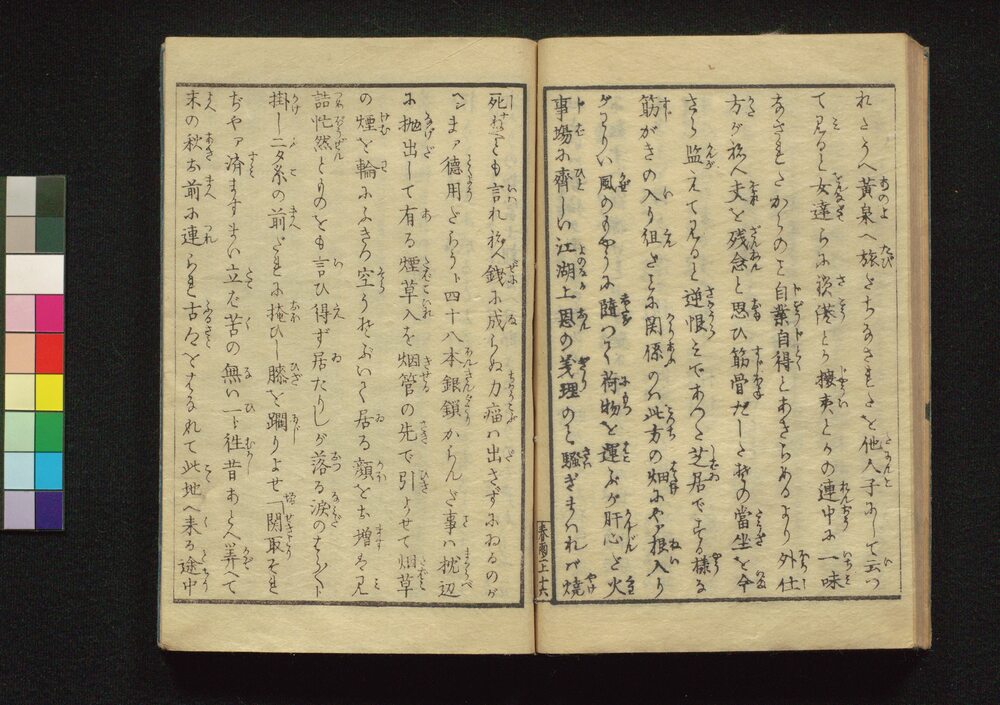 れとうへ黄泉へ旅さちなされたと他人子にして云つ
て見ると女達らに淡港とか攘夷とかの連中に一味
なされたからのこと自業自得とあきらめるより外仕
方が祢へ夫を残念と思ひ筋骨だした其の當坐を今
さら監えて見ると逆恨でであつた芝居でする様な
筋がきの入り組だことに関係のない此方の畑にやア根入り
がうすい風のもやうに随つて荷物を運ぶが肝心だ火
事場に齊しい江湖上恩の義理のと騒ぎまはれバ焼
死ねとも言れ祢へ銭に成らぬ力瘤ハ出さずにねるのが
ヘンまア徳用だらうト四十八本銀鎖からんだ事ハ枕辺
に抛出して有る煙草入を烟管の先で引よせて烟草
の煙を輪にふきつ空うそぶいて居る顔をお増は見
詰忙然とものをも言ひ得ず居たりしが落る涙のはら〳〵ト
掛し二タ糸の前だれに掩ひし膝を躙りよせ「関取それ
ぢやア済ますまい立た苦の無い一ト徃昔あとへ算へて
末の秋お前に連られ古郷をはなれて此地へ来る途中
春雨 上 十六